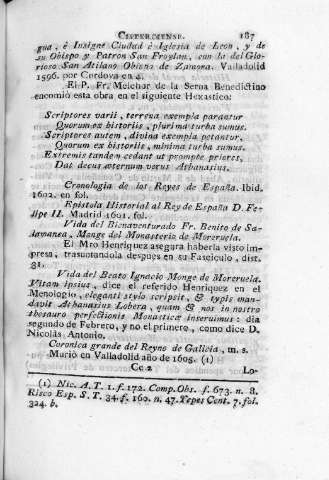 CISTERCIENSE. 187
gua, è Insigne Ciudad è Iglesia de Leon, y de
su Obispo y Patron San Froylan, con la del Glo-
rioso San Atilano Obispo de Zamora. Valladolid
1596. por Cordova en 4.
El P. Fr. Melchor de la Serna Benedictino
encomió esta obra en el siguiente Hexastico:
Scriptores varii, terrena exempla parantur
Quorum ex historiis, plurima turba sumus.
Scriptores autem, divina exempla petantur,
Quorum ex historiis, minima turba sumus.
Extremis tandem cedant ut prompte priores,
Dat decus æternum vorus Athanasius.
Cronologia de los Reyes de España. Ibid.
1602. en fol.
Epistola Historial al Rey de España D. Fe-
lipe II. Madrid 1601. fol.
Vida del Bienaventurado Fr. Benito de Sa-
lamanza, Monge del Monasterio de Moreruela.
El Mro Henriquez asegura haberla visto im-
presa, trasuntandola despues en su Fasciculo, dist.
31.
Vida del Beato Ignacio Monge de Moreruela.
Vitam ipsius, dice el referido Henriquez en el
Menologio, eleganti stylo scripsit, & typis man-
davit Athanasius Lobera, quam & nos in nostro
thesauro perfectionis Monasticæ inseruimus: dia
segundo de Febrero, y no el primero, como dice D.
Nicolás Antonio.
Coronica grande del Reyno de Galicia, m. s.
Murió en Valladolid año de 1605. (1)
Cc 2 Lo-
(1) Nic. A. T. 1. f. 172. Comp. Obs. f. 673. n. 8.
Risco Esp. S. T. 34. f. 160. n. 47. Yepes Cent. 7. fol.
324. b.